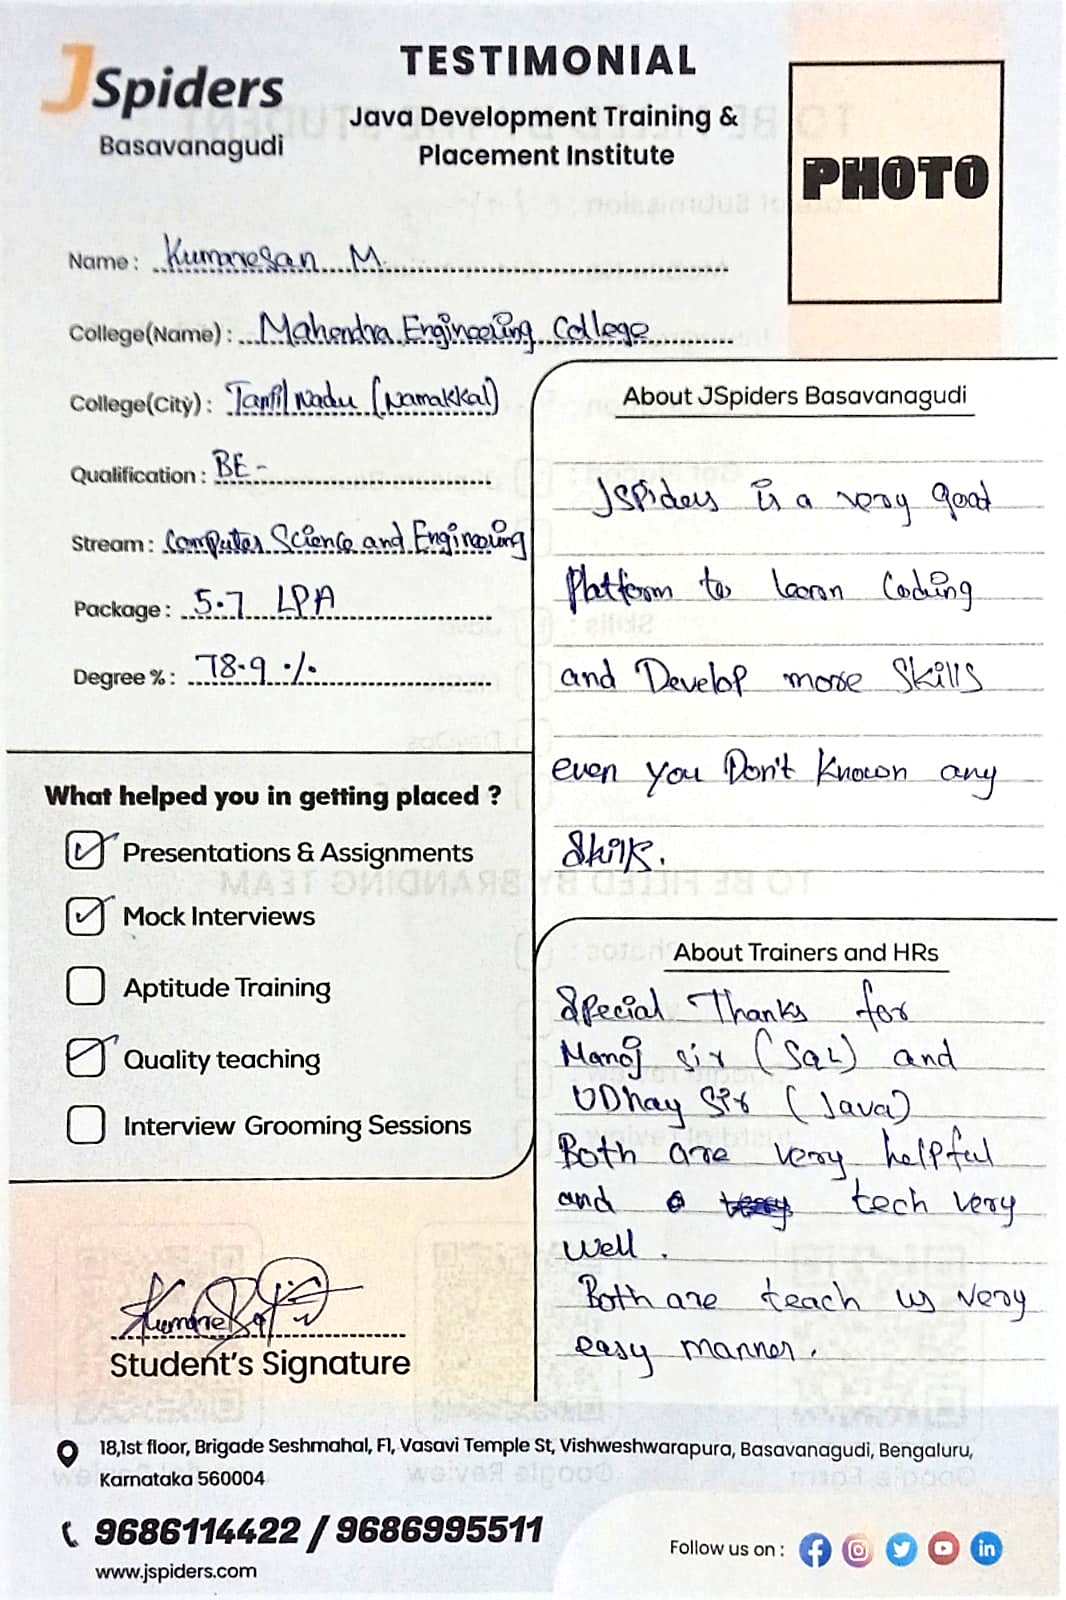 JSpiders
Basavanagudi
TESTIMONIAL
Java Development Training &
Placement Institute
PHOTO
Name : Kumaresan M.
College(Name) : Mahendra Engineering College
College(City) : Tamil Nadu (Namakkal)
Qualification : BE -
Stream : Computer Science and Engineering
Package : 5.7 LPA
Degree % : 78.9 %
What helped you in getting placed ?
Presentations & Assignments
Mock Interviews
Aptitude Training
Quality teaching
Interview Grooming Sessions
Student's Signature
About JSpiders Basavanagudi
JSpiders is a very good
Platform to learn Coding
and Develop more Skills
even you Don't Known any
Skills.
About Trainers and HRs
Special Thanks for
Manoj sir (SQL) and
UDhay Sir (Java)
Both are very helpful
and tech very
well .
Both are teach us very
easy manner .
18,1st floor, Brigade Seshmahal, F1, Vasavi Temple St, Vishweshwarapura, Basavanagudi, Bengaluru,
Karnataka 560004
9686114422 / 9686995511
www.jspiders.com
Follow us on :